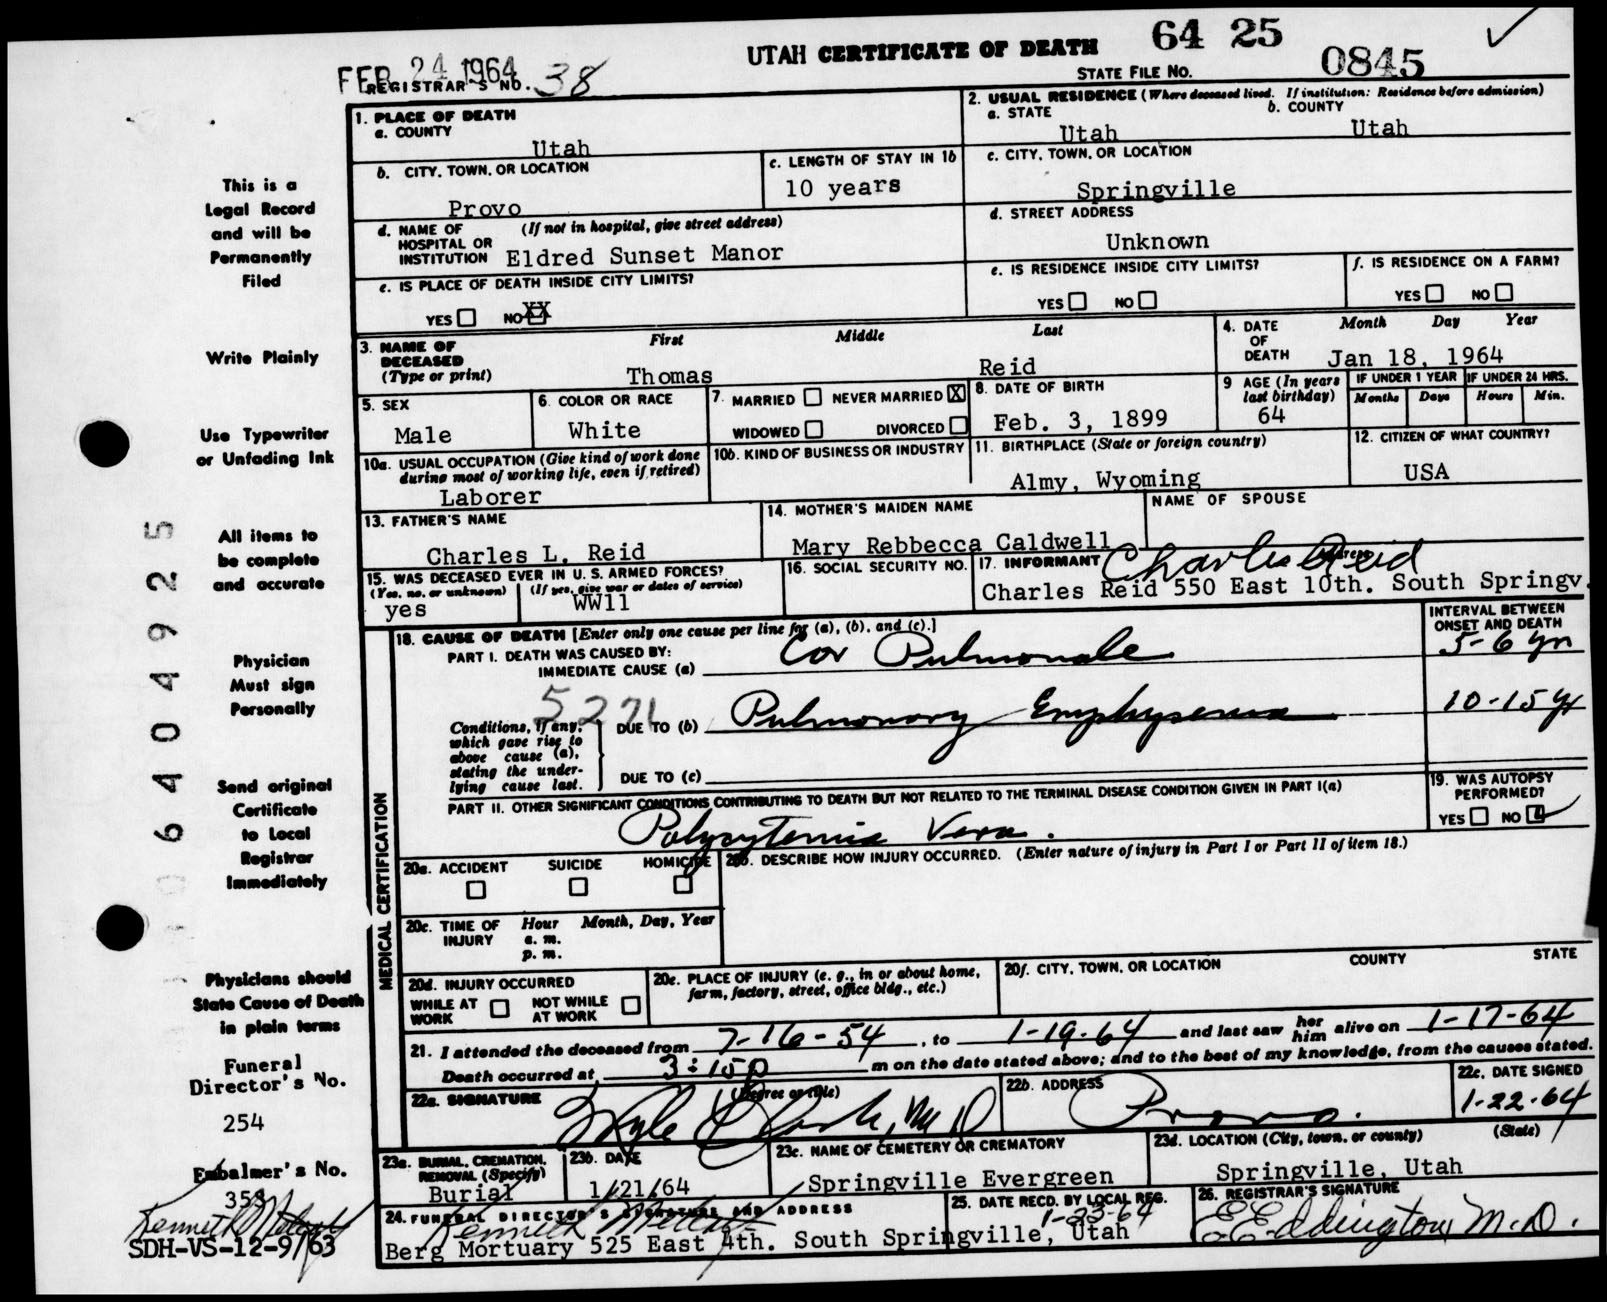 UTAH CERTIFICATE OF DEATH 64 25
FEB 24 1964
REGISTRAR'S NO. 38
STATE FILE NO. 0845
This is a
Legal Record
and will be
Permanently
Filed
Write Plainly
Use Typewriter
or Unfading Ink
All items to
be complete
and accurate
Physician
Must sign
Personally
Send original
Certificate
to Local
Registrar
Immediately
Physicians should
State Cause of Death
in plain terms
Funeral
Director's No.
254
Embalmer's No.
353
SDH-VS-12-9/63
1. PLACE OF DEATH
a. COUNTY
Utah
2. USUAL RESIDENCE (Where deceased lived. If institution: Residence before admission)
a. STATE b. COUNTY
Utah Utah
b. CITY, TOWN, OR LOCATION
Provo
c. LENGTH OF STAY IN 1b
10 years
c. CITY, TOWN, OR LOCATION
Springville
d. NAME OF (If not in hospital, give street address)
HOSPITAL OR
INSTITUTION Eldred Sunset Manor
d. STREET ADDRESS
Unknown
e. IS PLACE OF DEATH INSIDE CITY LIMITS?
YES NO XX
e. IS RESIDENCE INSIDE CITY LIMITS?
YES NO
f. IS RESIDENCE ON A FARM?
YES NO
3. NAME OF First Middle Last
DECEASED
(Type or print) Thomas Reid
4. DATE Month Day Year
OF
DEATH Jan 18, 1964
5. SEX
Male
6. COLOR OR RACE
White
7. MARRIED NEVER MARRIED X
WIDOWED DIVORCED
8. DATE OF BIRTH
Feb. 3, 1899
9 AGE (In years
last birthday)
64
IF UNDER 1 YEAR IF UNDER 24 HRS.
Months Days Hours Min.
10a. USUAL OCCUPATION (Give kind of work done
during most of working life, even if retired)
Laborer
10b. KIND OF BUSINESS OR INDUSTRY
11. BIRTHPLACE (State or foreign country)
Almy, Wyoming
12. CITIZEN OF WHAT COUNTRY?
USA
13. FATHER'S NAME
Charles L. Reid
14. MOTHER'S MAIDEN NAME
Mary Rebbecca Caldwell
NAME OF SPOUSE
15. WAS DECEASED EVER IN U. S. ARMED FORCES?
(Yes, no, or unknown) (If yes, give war or dates of service)
yes WW11
16. SOCIAL SECURITY NO.
17. INFORMANT Charles Reid Address
Charles Reid 550 East 10th. South Springv.
MEDICAL CERTIFICATION
18. CAUSE OF DEATH [Enter only one cause per line for (a), (b), and (c).]
INTERVAL BETWEEN
ONSET AND DEATH
PART I. DEATH WAS CAUSED BY:
IMMEDIATE CAUSE (a) Cor Pulmonale 5-6 yr
5271
Conditions, if any,
which gave rise to
above cause (a),
stating the under-
lying cause last.
DUE TO (b) Pulmonary Emphysema 10-15 yr
DUE TO (c)
PART II. OTHER SIGNIFICANT CONDITIONS CONTRIBUTING TO DEATH BUT NOT RELATED TO THE TERMINAL DISEASE CONDITION GIVEN IN PART I(a)
Polycytemia Vera.
19. WAS AUTOPSY
PERFORMED?
YES NO
20a. ACCIDENT SUICIDE HOMICIDE
20b. DESCRIBE HOW INJURY OCCURRED. (Enter nature of injury in Part I or Part II of item 18.)
20c. TIME OF Hour Month, Day, Year
INJURY a. m.
p. m.
20d. INJURY OCCURRED
WHILE AT NOT WHILE
WORK AT WORK
20e. PLACE OF INJURY (e. g., in or about home,
farm, factory, street, office bldg., etc.)
20f. CITY, TOWN, OR LOCATION COUNTY STATE
21. I attended the deceased from 7-16-54, to 1-19-64 and last saw her him alive on 1-17-64
Death occurred at 3:15p m on the date stated above; and to the best of my knowledge, from the causes stated.
22a. SIGNATURE (Degree or title)
M D
22b. ADDRESS
Provo.
22c. DATE SIGNED
1-22-64
23a. BURIAL, CREMATION,
REMOVAL (Specify)
Burial
23b. DATE
1/21/64
23c. NAME OF CEMETERY OR CREMATORY
Springville Evergreen
23d. LOCATION (City, town, or county) (State)
Springville, Utah
24. FUNERAL DIRECTOR'S SIGNATURE AND ADDRESS
Berg Mortuary 525 East 4th. South Springville, Utah
25. DATE RECD. BY LOCAL REG.
1-23-64
26. REGISTRAR'S SIGNATURE
E E Eddington, M.D.